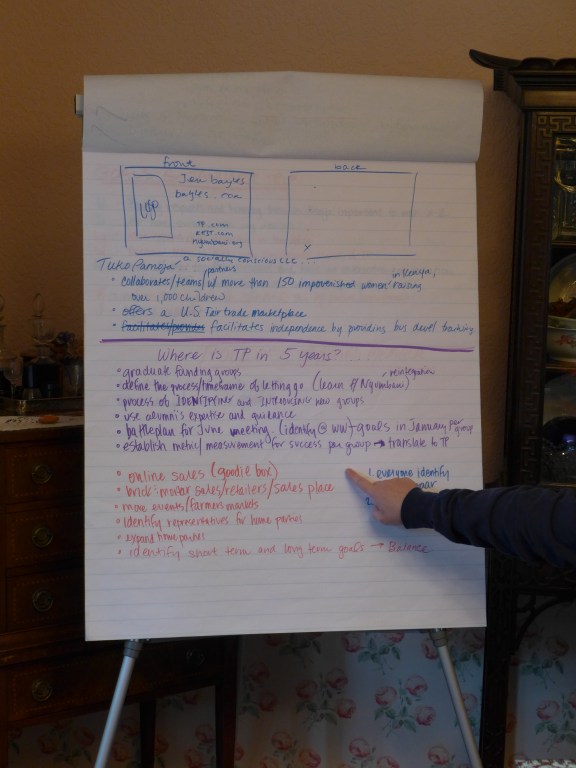 front
back
Jen bayles
bayles.com
TP.com
a socially conscious LLC...
Tuko Pamoja
partners
in Kenya,
• collaborates/teams w/ more than 150 impoverished women raising
over 1,000 children
• offers a U.S Fair trade marketplace
• facilitates/provides facilitates independence by providing bus devel training
Where is TP in 5 years?
reintegration
• graduate founding groups
• define the process/timeframe of letting go (learn f/ Nyumbani)
• process of IDENTIFYING and INTRODUCING new groups
• use alumni's expertise and guidance
• battleplan for June meeting. (identify @ WW goals in January per group
• establish metric/measurement for success per group → translate to TP
• online sales (goodie box)
• brick-mortar sales/retailers/sales place
• more events/farmers markets
• Identify representatives for home parties
• expand home parties
• identify short term and long term goals → Balance
1. everyone identify
2.